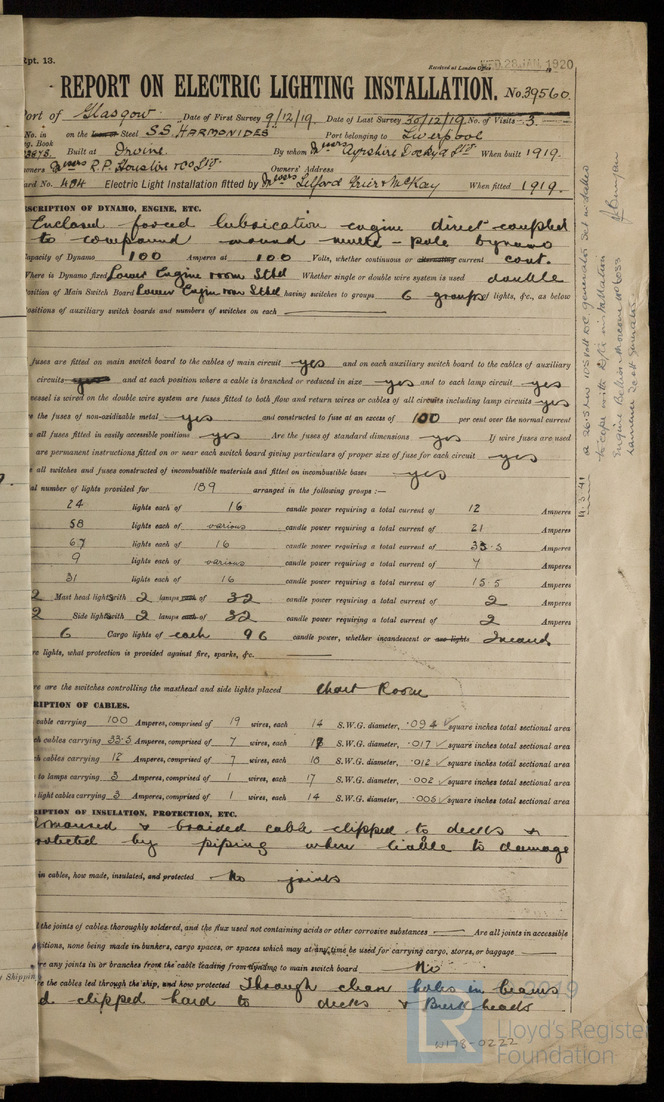 Rpt. 13.
Received at London Office WED. 28 JAN. 1920
REPORT ON ELECTRIC LIGHTING INSTALLATION. No. 39560
Port of Glasgow Date of First Survey 9/12/19 Date of Last Survey 30/12/19 No. of Visits 3
No. in on the Steel S.S. "HARMONIDES" Port belonging to Liverpool
Reg. Book
Built at Irvine By whom Messrs Ayrshire Dockyd Ltd When built 1919.
Owners Messrs R.P. Houston & Co Ltd. Owners' Address
Yard No. 484 Electric Light Installation fitted by Messrs Telford Grier & McKay When fitted 1919.
DESCRIPTION OF DYNAMO, ENGINE, ETC.
Enclosed forced lubrication engine direct coupled
to compound wound multi-pole dynamo
Capacity of Dynamo 100 Amperes at 100 Volts, whether continuous or alternating current cont.
Where is Dynamo fixed Lower Engine room Stbd Whether single or double wire system is used double
Position of Main Switch Board Lower Engin room Stbd having switches to groups 6 groups of lights, &c., as below
Positions of auxiliary switch boards and numbers of switches on each
fuses are fitted on main switch board to the cables of main circuit yes and on each auxiliary switch board to the cables of auxiliary
circuits yes and at each position where a cable is branched or reduced in size yes and to each lamp circuit yes
vessel is wired on the double wire system are fuses fitted to both flow and return wires or cables of all circuits including lamp circuits yes
are the fuses of non-oxidizable metal yes and constructed to fuse at an excess of 100 per cent over the normal current
all fuses fitted in easily accessible positions yes Are the fuses of standard dimensions yes If wire fuses are used
are permanent instructions fitted on or near each switch board giving particulars of proper size of fuse for each circuit yes
all switches and fuses constructed of incombustible materials and fitted on incombustible bases yes
al number of lights provided for 189 arranged in the following groups :—
24 lights each of 16 candle power requiring a total current of 12 Amperes
58 lights each of various candle power requiring a total current of 21 Amperes
67 lights each of 16 candle power requiring a total current of 33.5 Amperes
9 lights each of various candle power requiring a total current of 7 Amperes
31 lights each of 16 candle power requiring a total current of 15.5 Amperes
2 Mast head lights with 2 lamps each of 32 candle power requiring a total current of 2 Amperes
2 Side lights with 2 lamps each of 32 candle power requiring a total current of 2 Amperes
6 Cargo lights of each 96 candle power, whether incandescent or arc lights Incand
re lights, what protection is provided against fire, sparks, &c.
re are the switches controlling the masthead and side lights placed Chart Room
RIPTION OF CABLES.
cable carrying 100 Amperes, comprised of 19 wires, each 14 S.W.G. diameter, .094 square inches total sectional area
h cables carrying 33.5 Amperes, comprised of 7 wires, each S.W.G. diameter, .017 square inches total sectional area
h cables carrying 12 Amperes, comprised of 7 wires, each 18 S.W.G. diameter, .012 square inches total sectional area
to lamps carrying 3 Amperes, comprised of 1 wires, each 17 S.W.G. diameter, .002 square inches total sectional area
light cables carrying 3 Amperes, comprised of 1 wires, each 14 S.W.G. diameter, .005 square inches total sectional area
RIPTION OF INSULATION, PROTECTION, ETC.
Armoured & braided cable clipped to decks &
protected by piping when liable to damage
in cables, how made, insulated, and protected No joints
l the joints of cables thoroughly soldered, and the flux used not containing acids or other corrosive substances Are all joints in accessible
sitions, none being made in bunkers, cargo spaces, or spaces which may at any time be used for carrying cargo, stores, or baggage
re any joints in or branches from the cable leading from dynamo to main switch board No
re the cables led through the ship, and how protected Through clean holes in beams
d clipped hard to decks & Bulkheads
© 2019
LR
Lloyd's Register
Foundation
W178-0222
11.3.41
a 26.5 kw, 105 volt DC generator set installed
to cope with D/G installation
Lawrence Scott Generator
t Shipping